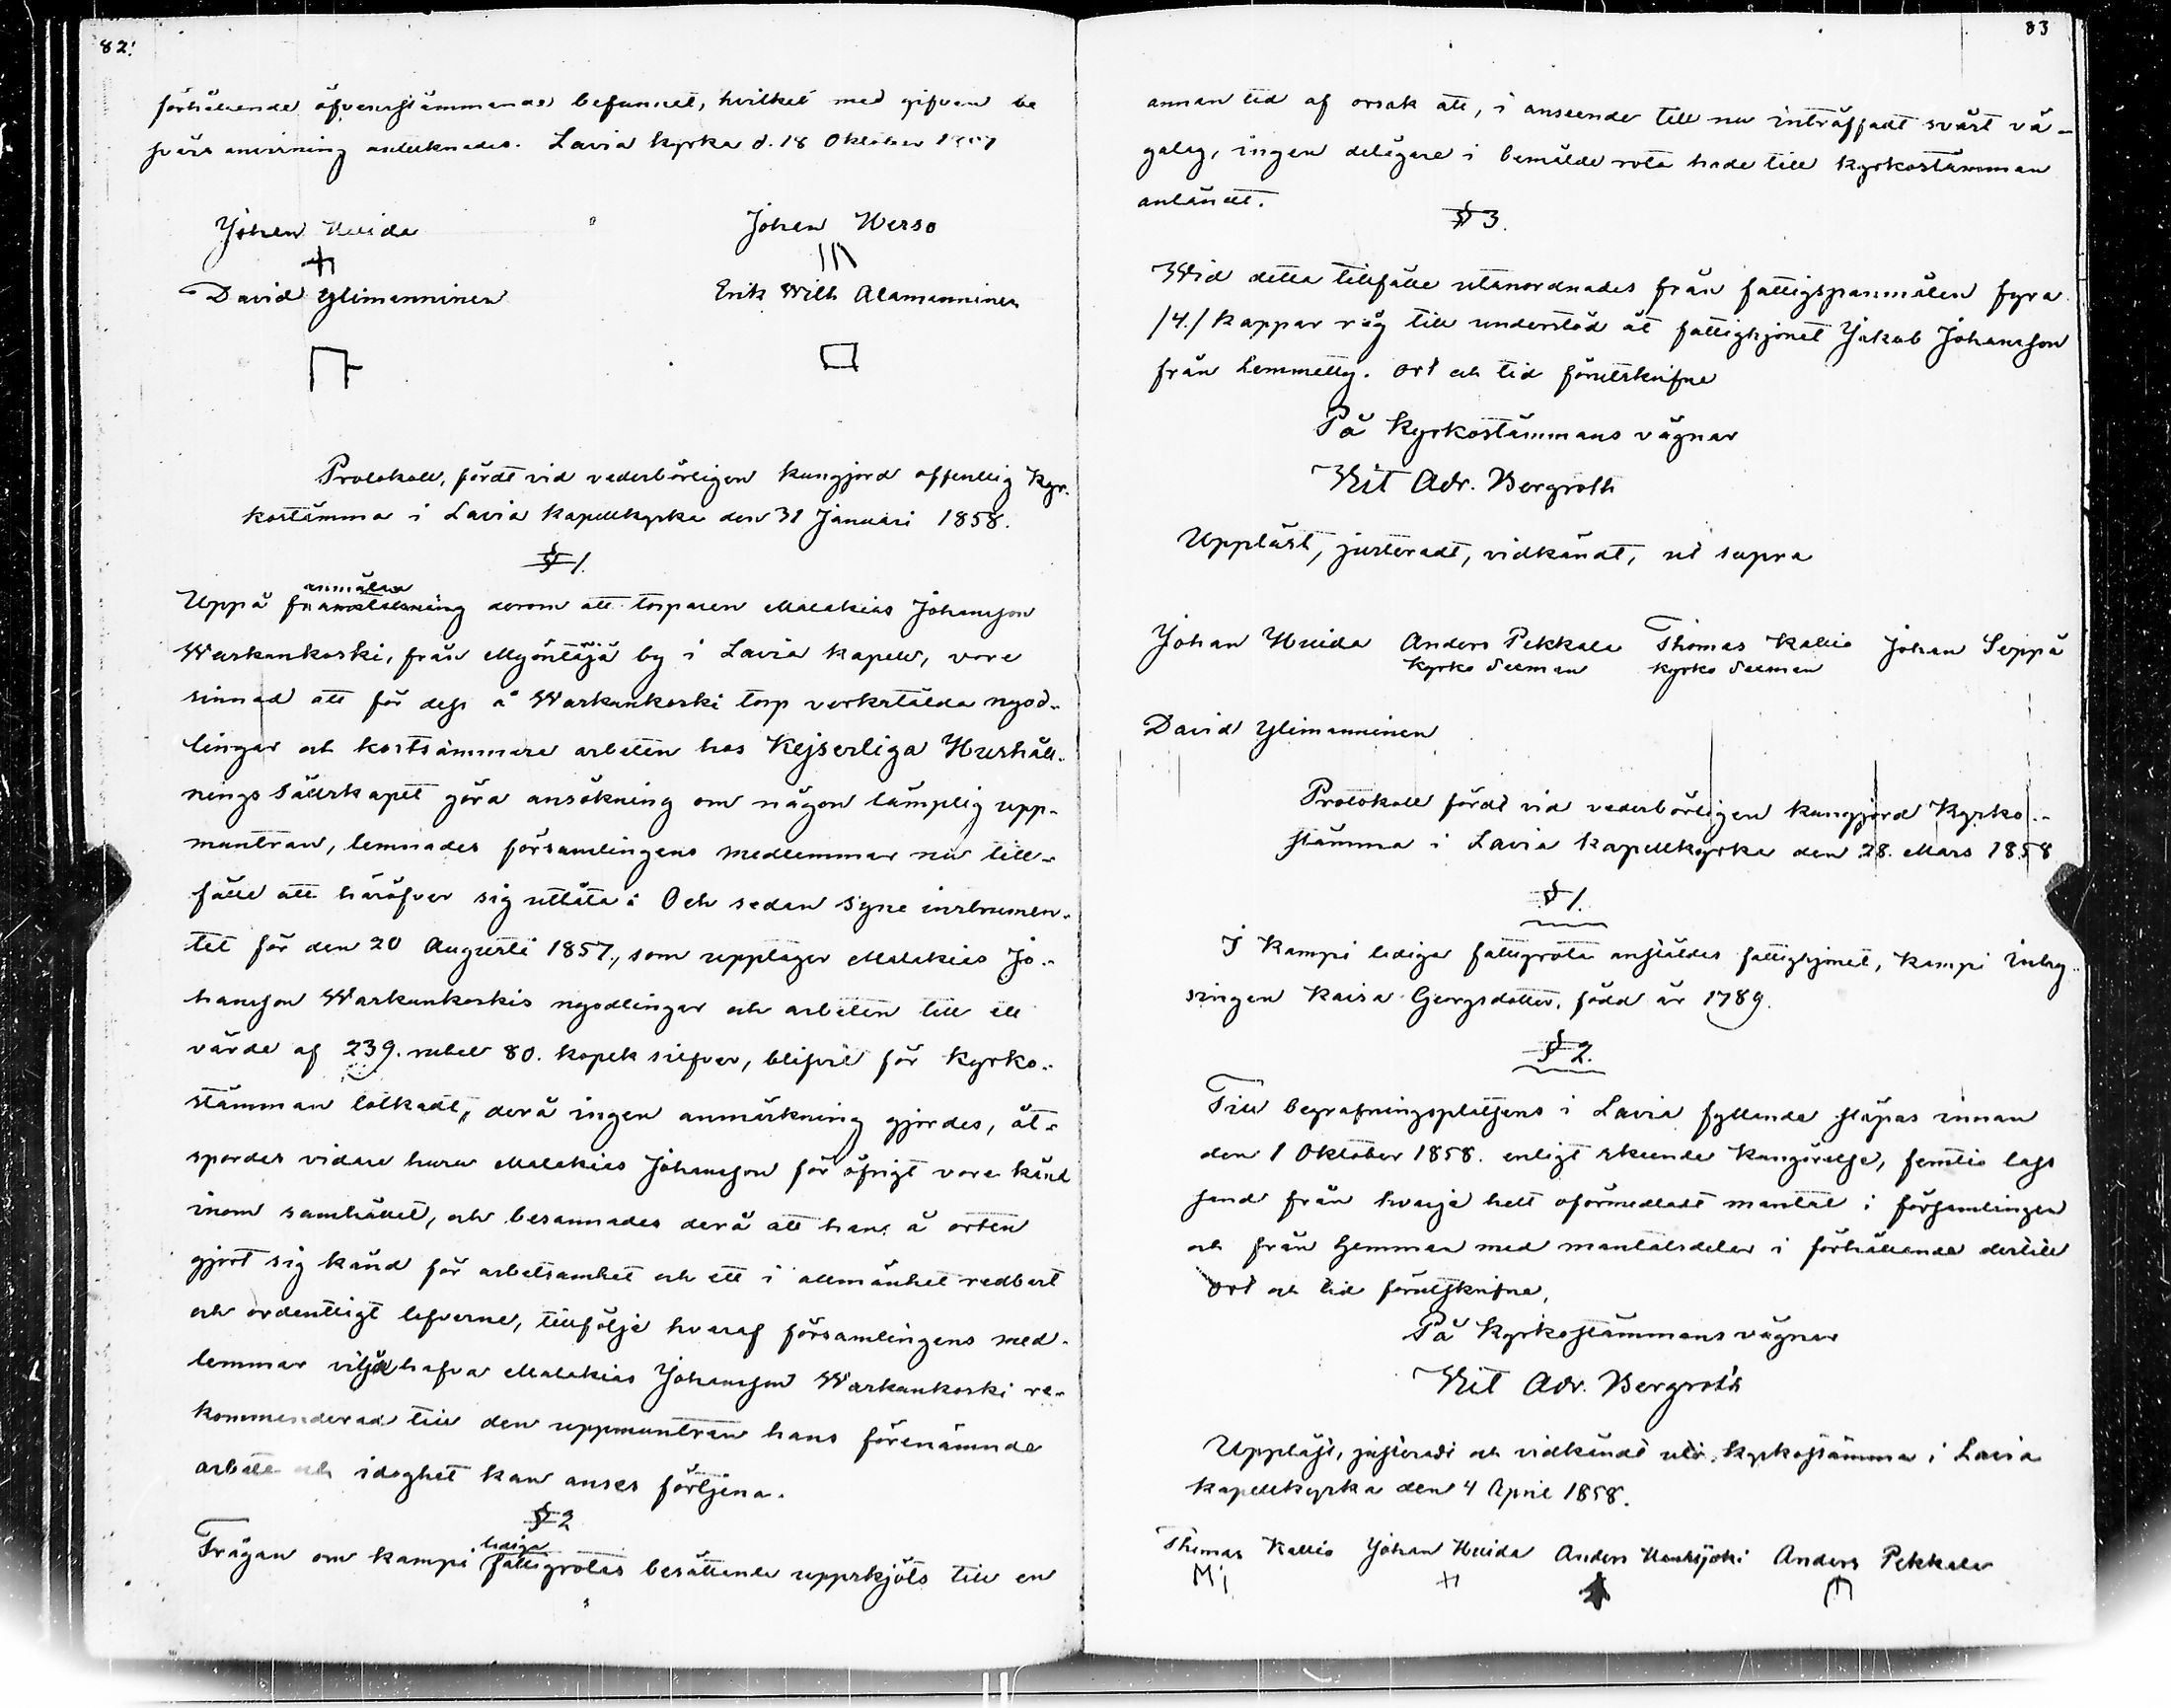 82.
förhållande öfverensstämmande befunnet, hvilket med gifven be
svärs anvisning antecknades. Lavia kyrka d. 18 Oktober 1857
Johan Huida Johan Werso
David Ylimanninen Erik Wilh Alamanninen
Protokoll, fördt vid vederbörligen kungjord offentlig Kyr-
kostämma i Lavia Kapellkyrka den 31 Januari 1858.
§ 1.
anmälan
Uppå framställning derom att torparen Malakias Johansson
Warkankoski, från Myöntäjä by i Lavia kapell, vore
sinnad att för dess å Warkankoski torp verkstälda nyod-
lingar och kostsammare arbeten hos Kejserliga Hushåll-
nings Sällskapet göra ansökning om någon lämplig upp-
muntran, lemnades församlingens medlemmar nu till-
fälle att häröfver sig utlåta: Och sedan syne instrumen-
tet för den 20 Augusti 1857., som upptager Malakias Jo-
hansson Warkankoskis nyodlingar och arbeten till ett
värde af 239. rubel 80. kopek silfver, blifvit för Kyrko-
stämman tolkadt, derå ingen anmärkning gjordes, åt-
spordes vidare huru Malakias Johansson för öfrigt vore känd
inom samhället, och besannades derå att han å orten
gjort sig känd för arbetsamhet och ett i allmänhet redbart
och ordentligt lefverne, tillfölje hvaraf församlingens med-
lemmar vilja hafva Malakias Johansson Warkankoski re-
kommenderad till den uppmuntran hans förenämnde
arbete och idoghet kan anses förtjena.
§ 2
lediga
Frågan om Kampi fattigrotas besättande uppskjöts till en
83
annan tid af orsak att, i anseende till nu inträffadt svårt vä-
galag, ingen delägare i bemälde rota hade till Kyrkostämman
anländt.
§ 3.
Wid detta tillfälle utanordnades från fattigspanmålen fyra
/4./ kappar råg till understöd åt fattighjonet Jakob Johansson
från Lemmetty. Ort och tid förutskrifne
På Kyrkostämmans vägnar
Wit Adr. Bergroth
Uppläst, justeradt, vidkändt, ut supra
Johan Huida Anders Pekkala Thomas Kallio Johan Seppä
Kyrko Sexman Kyrko Sexman
David Ylimanninen
Protokoll fördt vid vederbörligen kungjord Kyrko-
stämma i Lavia Kapellkyrka den 28. Mars 1858
§ 1.
I Kampi lediga fattigrota anställdes fattighjonet, Kampi Inhy-
singen Kaisa Georgsdotter, född år 1789.
§ 2.
Till begrafningsplatsens i Lavia fyllande släpas innan
den 1 Oktober 1858. enligt skeende kungörelse, femtio lass
sand från hvarje helt oförmedladt mantal i församlingen
och från hemman med mantalsdelar i förhållande dertill
Ort och tid förutskrifne,
På Kyrkostämmans vägnar
Wit Adr. Bergroth
Uppläst, justeradt och vidkändt vid Kyrkostämma i Lavia
kapellkyrka den 4 April 1858.
Thomas Kallio Johan Huida Anders Anders Pekkala